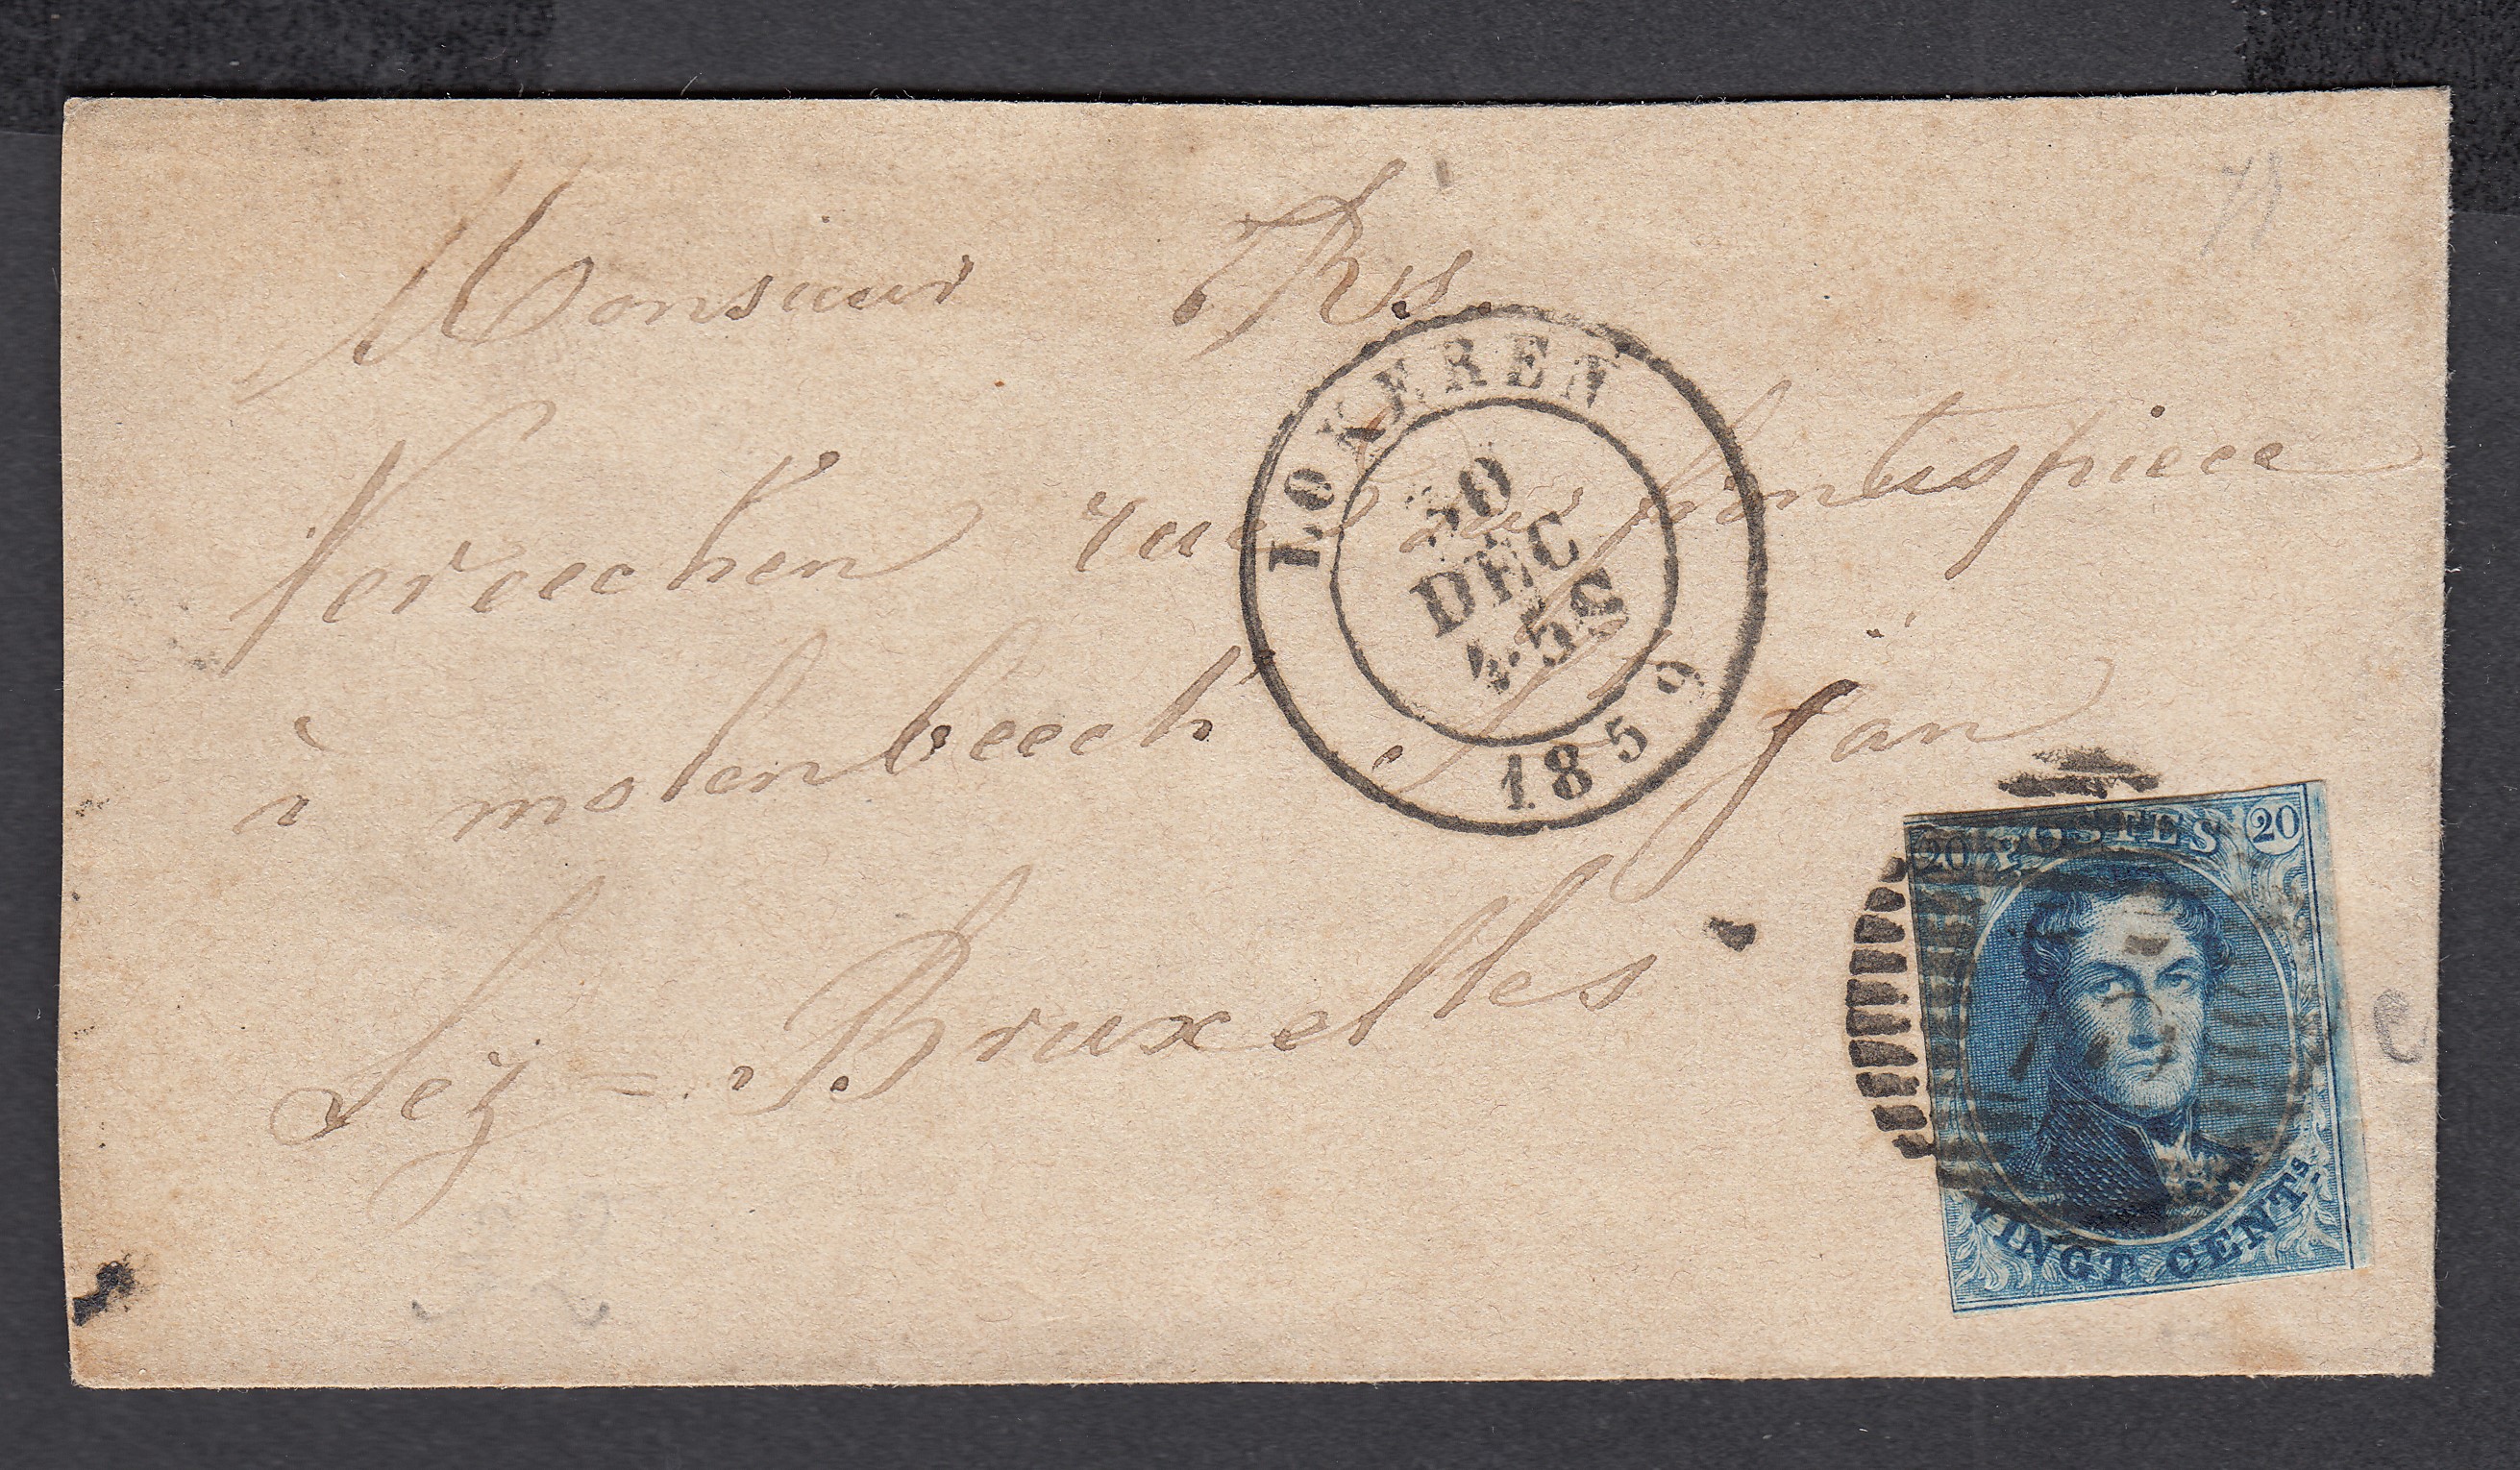 Monsieur Rs.
Vereechen rue frontispiece
à molenbeeck St jan
Lez = Bruxelles
LOKEREN
30
DEC
4·5S
1859
20 POSTES 20
VINGT CENTs.